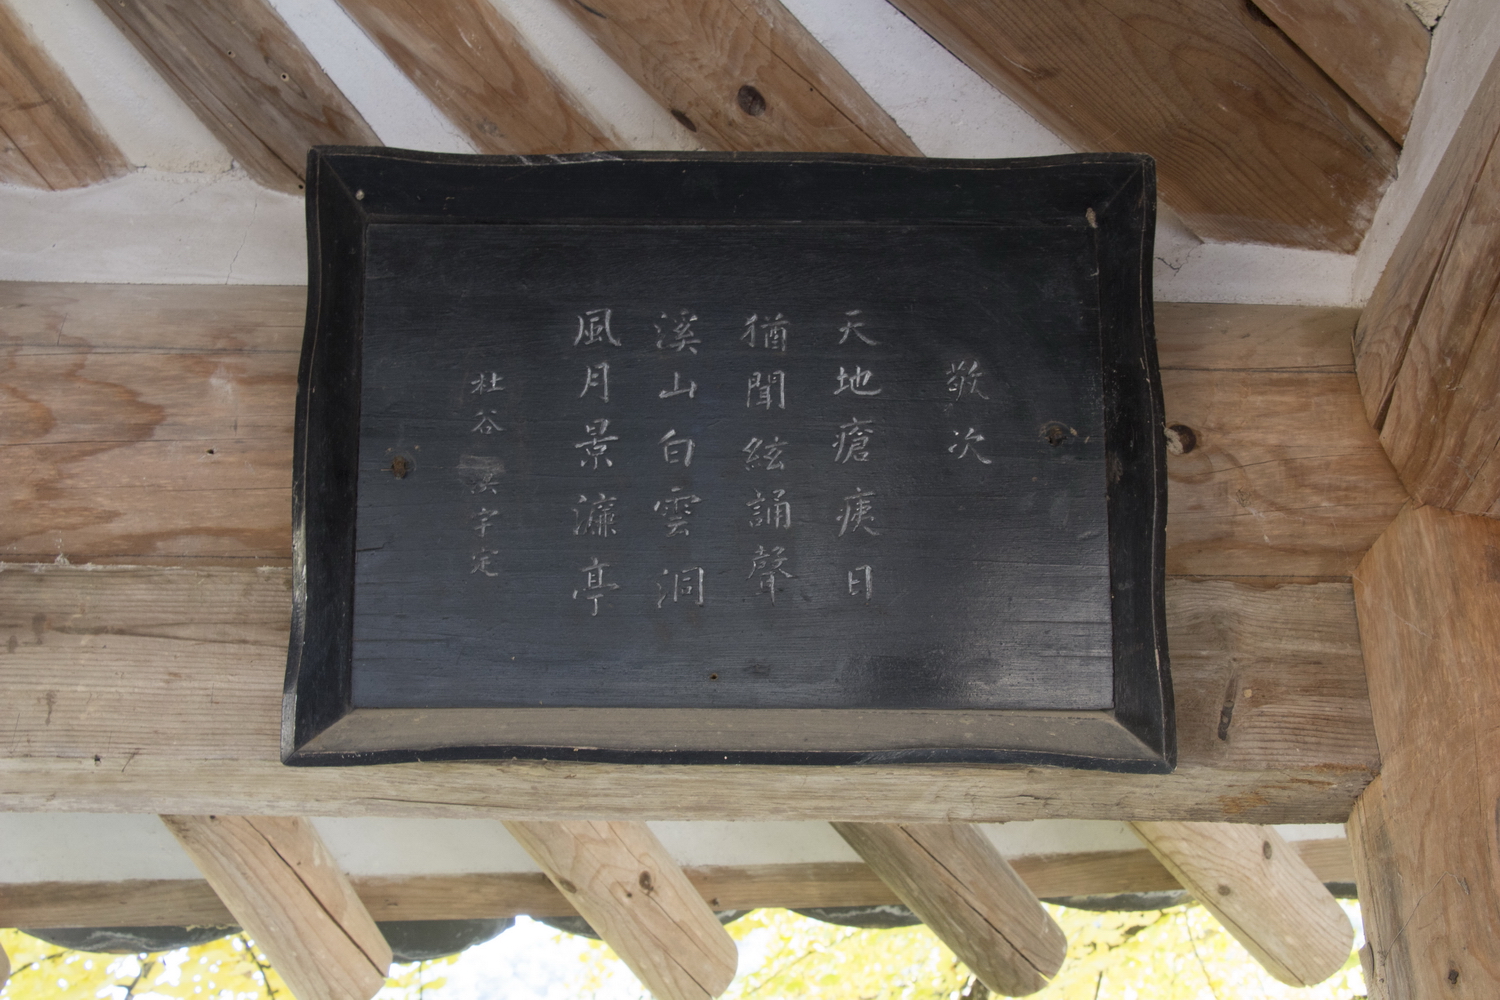 敬次
天地瘡痍日
猶聞絃誦聲
溪山白雲洞
風月景濂亭
杜谷 宇定